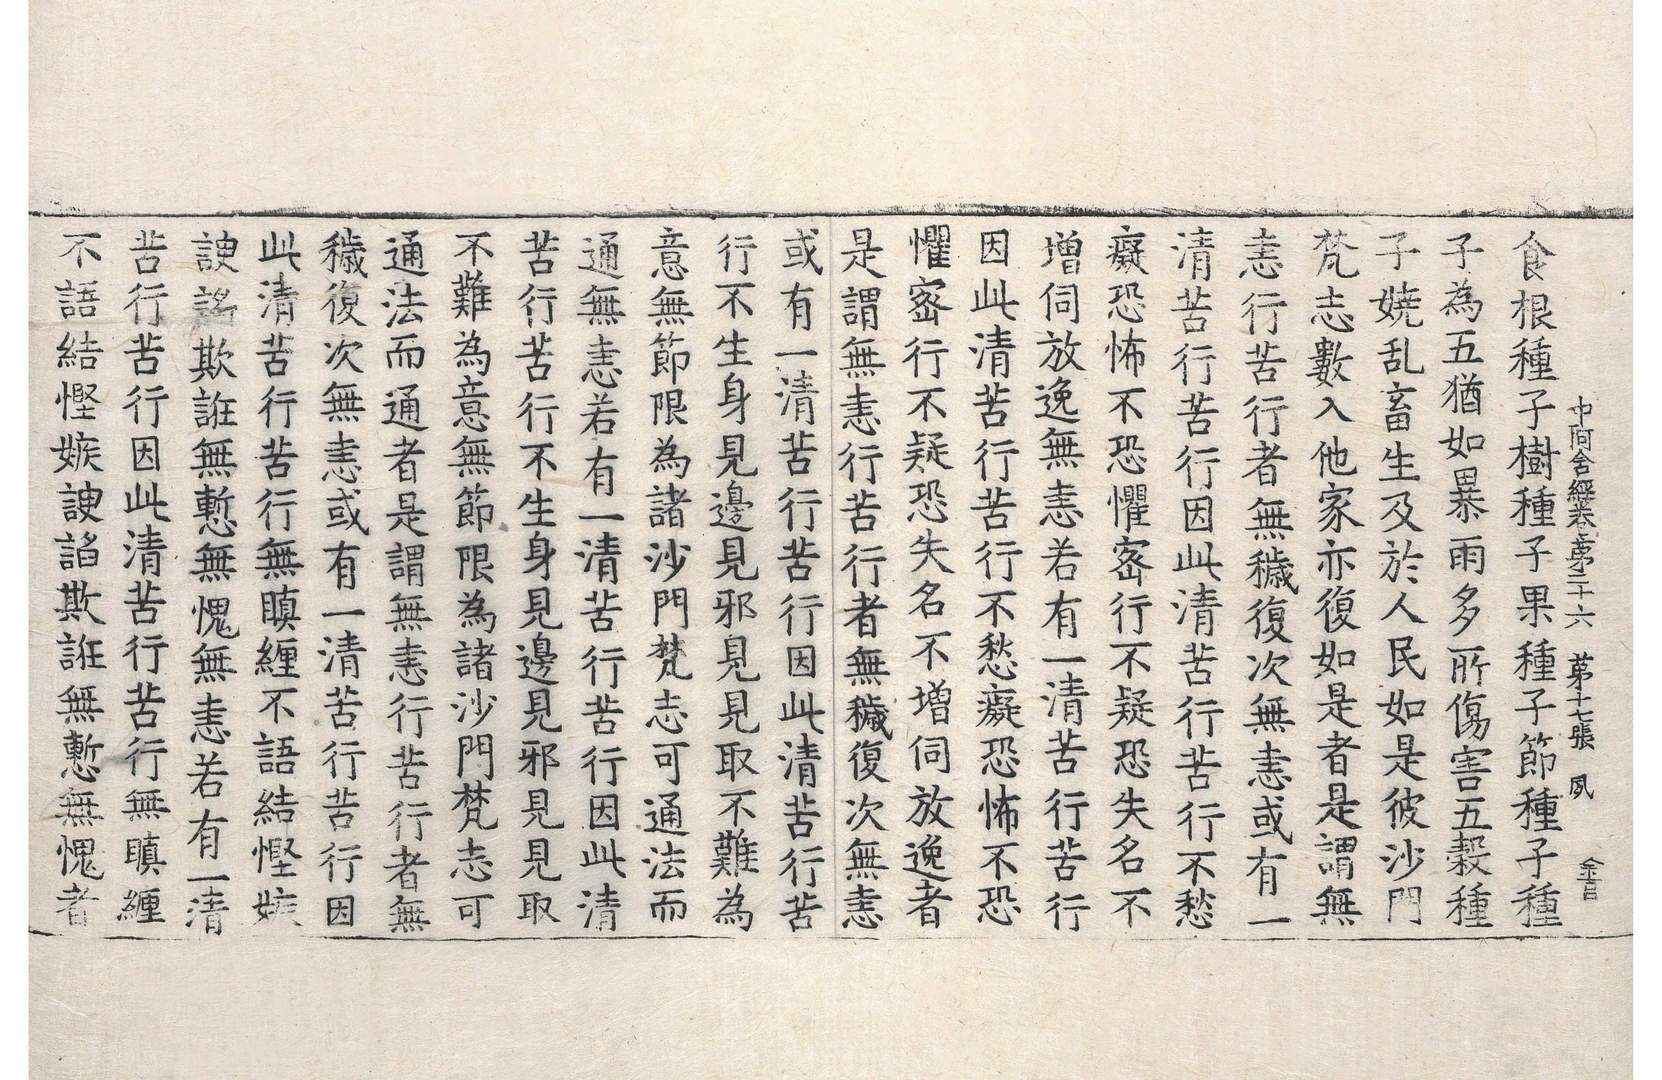 中阿含經卷第二十六 第十七張 夙
食根種子樹種子果種子節種子種
子為五猶如暴雨多所傷害五穀種
子嬈乱畜生及於人民如是彼沙門
梵志數入他家亦復如是者是謂無
恚行苦行者無穢復次無恚或有一
清苦行苦行因此清苦行苦行不愁
癡恐怖不恐懼密行不疑恐失名不
增伺放逸無恚若有一清苦行苦行
因此清苦行苦行不愁癡恐怖不恐
懼密行不疑恐失名不增伺放逸者
是謂無恚行苦行者無穢復次無恚
或有一清苦行苦行因此清苦行苦
行不生身見邊見邪見見取不難為
意無節限為諸沙門梵志可通法而
通無恚若有一清苦行苦行因此清
苦行苦行不生身見邊見邪見見取
不難為意無節限為諸沙門梵志可
通法而通者是謂無恚行苦行者無
穢復次無恚或有一清苦行苦行因
此清苦行苦行無瞋纏不語結慳嫉
諛諂欺誑無慙無愧無恚若有一清
苦行苦行因此清苦行苦行無瞋纏
不語結慳嫉諛諂欺誑無慙無愧者